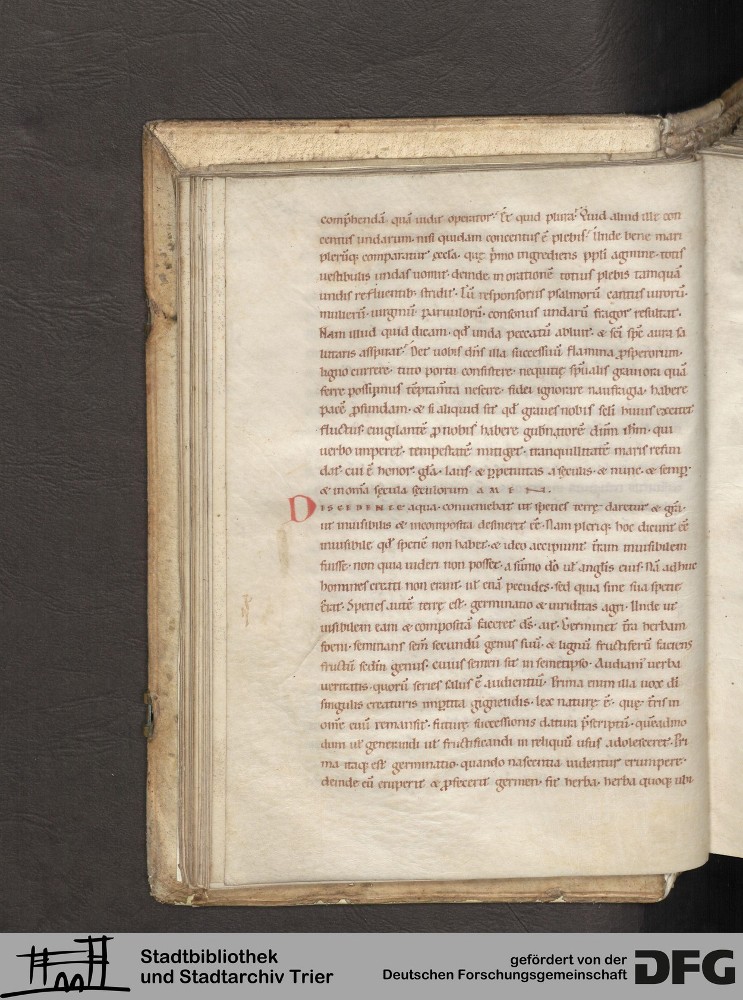 comp̄hendā. quā uidit operator. Et quid plura? Quid aliud ille con
centus undarum. nisi quidam concentus ē plebis? Unde bene mari
plerūq; comparatur ęccła. que p̄mo ingrediens ppłi agmine. totis
uestibulis undas uomit. deinde in oratione totius plebis tamquā
undis refluentib; stridit. Cū responsoriis psalmorū cantus uirorū.
mulierū. uirginū paruulorū. consonus undarū fragor resultat.
Nam illud quid dicam. qđ unda peccatū abluit. & scī spc̄ aura sa
lutaris aspirat? Det uobis dn̄s illa successiuū flamina ꝓsperorum.
ligno currere. tuto portu consistere. nequitię sp̄ualis grauiora quā
ferre possimus tēptam̄ta nescire. fidei ignorare naufragia. habere
pacē ꝓfundam. & si aliquid sit qđ graues nobis sc̄li huius excitet
fluctus. euigilantē ꝓ nobis habere gub̄natorē dn̄m ih̄m. qui
uerbo imperet. tempestatē mitiget. tranquillitatē maris refun
dat. cui ē honor. gła. laus. & ꝑpetuitas. a sęculis. & nunc. & semꝑ.
& in om̄a sęcula sęculorum AMEN.
DISCEDENTE aqua. conueniebat ut species terrę daretur & gr̄a.
ut inuisibilis & incomposita desineret eē. Nam pleriq; hoc dicunt eē
inuisibile qđ specię non habet. & ideo accipiunt t̄ram inuisibilem
fuisse. non quia uideri non posset. a sūmo dō uł anglis eius. Nā adhuc
homines creati non erant. uł etiā pecudes. sed quia sine sua specie
erat. Species autē terrę est. germinatio & uiriditas agri. Unde ut
uisibilem eam & compositā faceret ds̄. ait. Germinet t̄ra herbam
foeni. seminans sem̄ secundū genus suū. & lignū fructiferū faciens
fructū scd̄m genus. cuius semen sit in semetipso. Audiam uerba
ueritatis. quorū series salus ē audientiū. Prima enim illa uox dī
singulis creaturis inꝑtita gignendis. lex naturę ē. que t̄ris in
om̄e euū remansit. futurę successionis datura p̄scriptū. quēadmo
dum uł generandi uł fructificandi in reliquū usus adolesceret. Pri
ma itaq; est germinatio. quando nascentia uidentur erumpere.
deinde cū eruperit & ꝓfecerit germen. fit herba. herba quoq; ubi
Stadtbibliothek
und Stadtarchiv Trier
gefördert von der
Deutschen Forschungsgemeinschaft
DFG